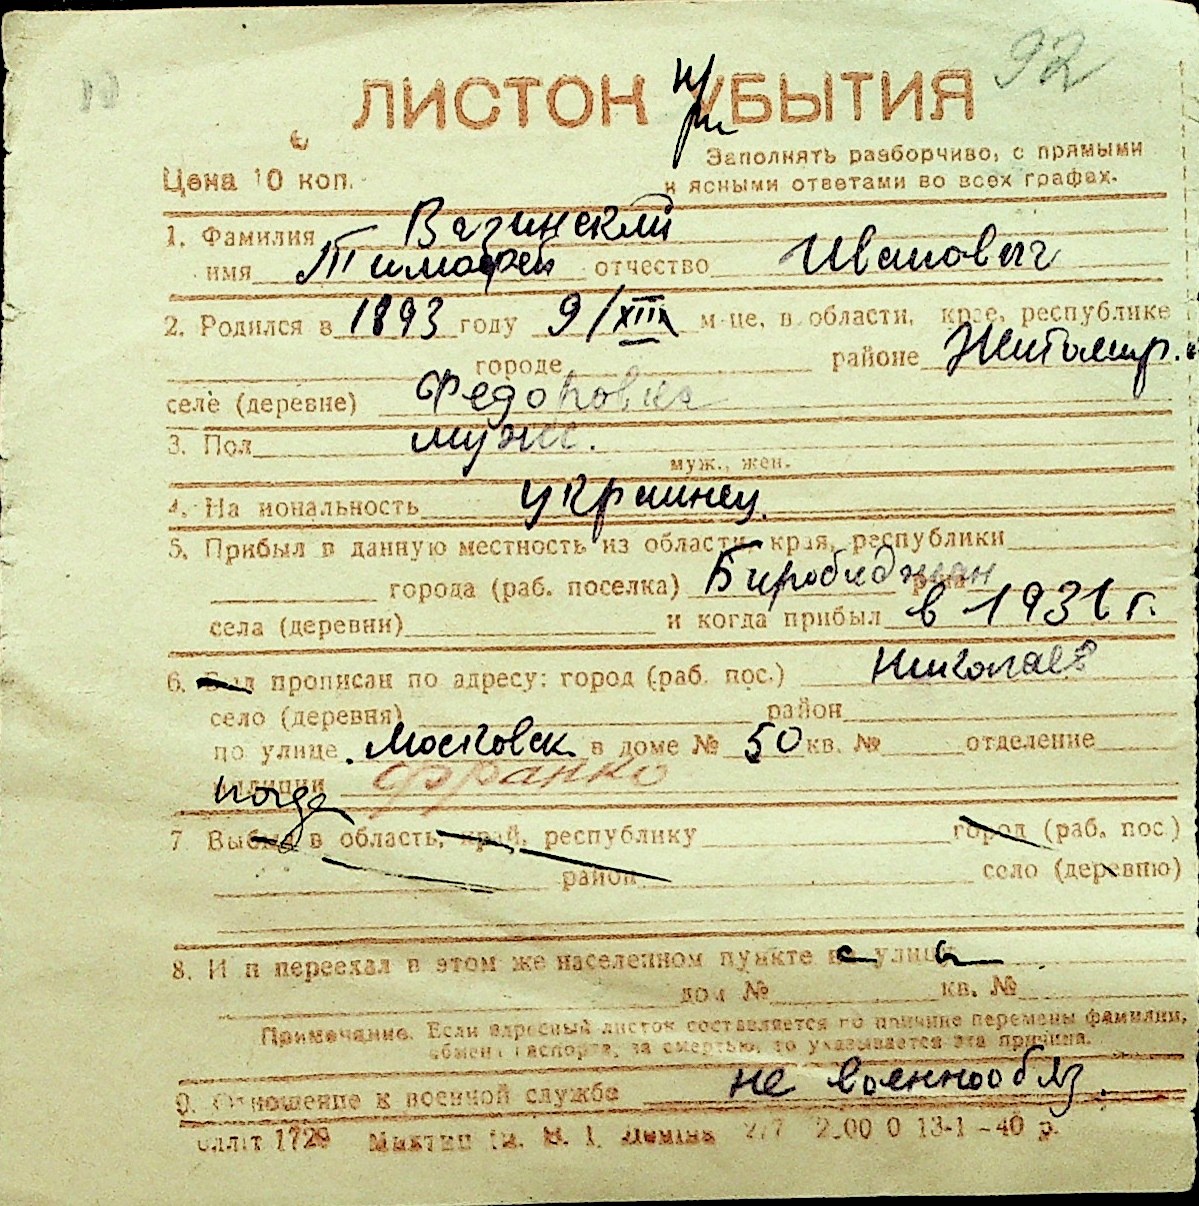 92
ЛИСТОК УБЫТИЯ
при
Заполнять разборчиво, с прямыми
Цена 10 коп.
и ясными ответами во всех графах.
1. Фамилия Вазинский
имя Тимофей отчество Иванович
2. Родился в 1893 году 9/ м-це, в области, крае, республике
городе районе Житомир.
селе (деревне) Федоровка
3. Пол муж.
муж., жен.
4. На иональность украинец.
5. Прибыл в данную местность из области, края, республики
города (раб. поселка) Биробиджан
села (деревни) и когда прибыл в 1931 г.
6. Был прописан по адресу: город (раб. пос.) Николаев
село (деревня) район
по улице Московск в доме № 50 кв. № отделение
милиции Франко
7 Выбыл в область, край, республику город (раб. пос.)
район село (деревню)
8. И и переехал в этом же населенном пункте на улицу
дом № кв. №
Примечание. Если адресный листок составляется по причине перемены фамилии,
обмен паспорта, за смертью, то указывается эта причина.
9. Отношение к военной службе не военнообяз.
1729 13-1-40 р.